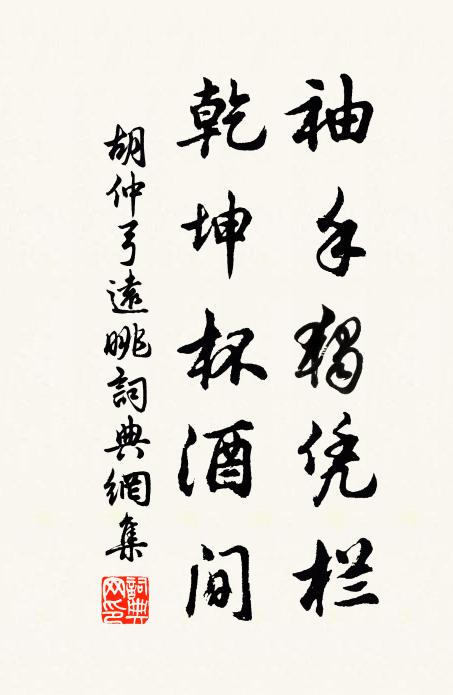 袖手獨凭栏
乾坤杯酒间
胡仲弓遠眺詞典網集
詞典网印